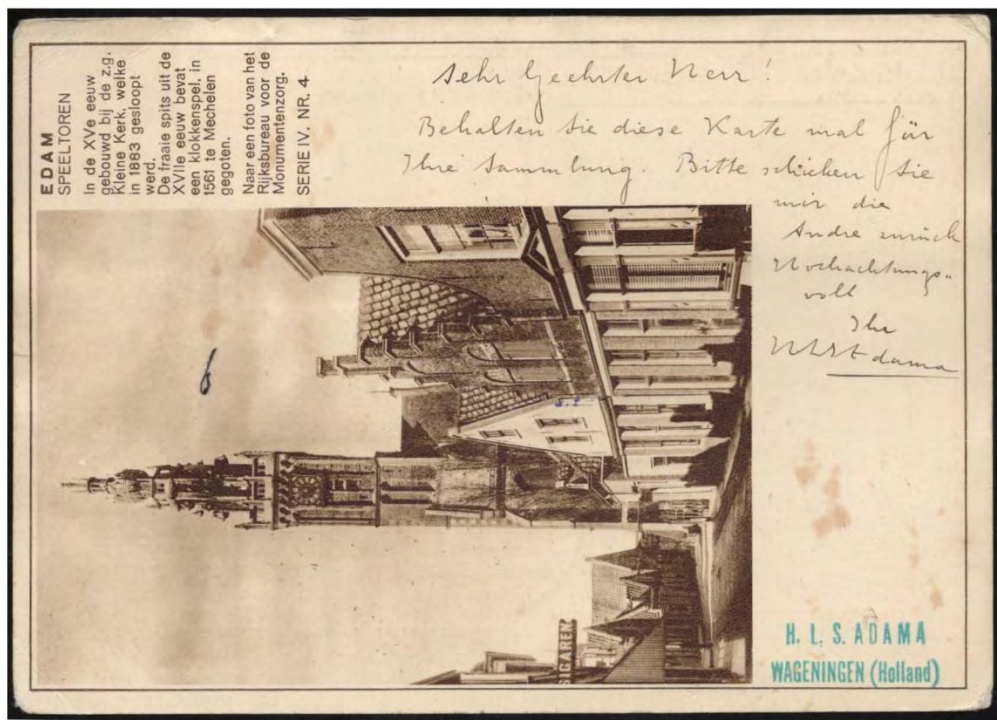 EDAM
SPEELTOREN
In de XVe eeuw
gebouwd bij de z.g.
Kleine Kerk, welke
in 1883 gesloopt
werd.
De fraaie spits uit de
XVIIe eeuw bevat
een klokkenspel, in
1561 te Mechelen
gegoten.
Naar een foto van het
Rijksbureau voor de
Monumentenzorg.
SERIE IV. NR. 4
Sehr Geehrter Herr!
Behalten Sie diese Karte mal für
Ihre Sammlung. Bitte schicken Sie
mir die
Andre zurück
Hochachtungs-
voll
Ihr
HLSAdama
SIGAREN
H. L. S. ADAMA
WAGENINGEN (Holland)